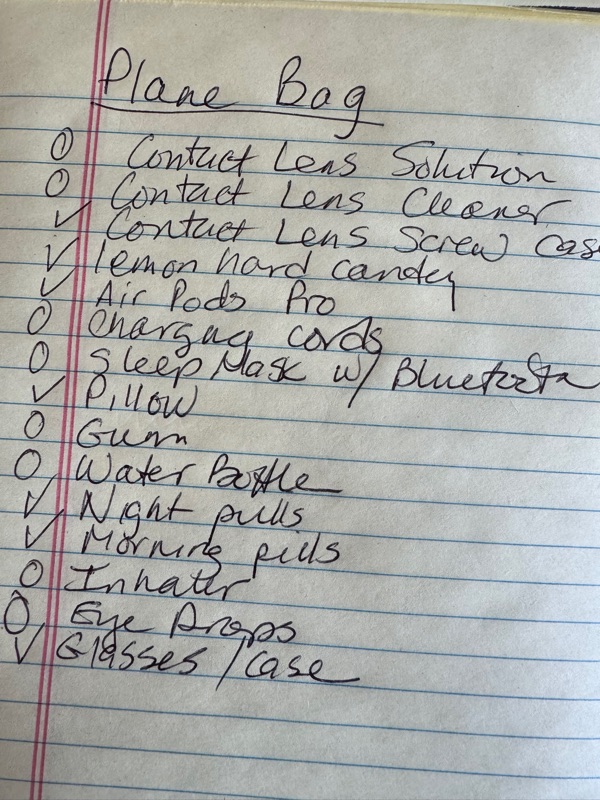 Plane Bag
O Contact Lens Solution
O Contact Lens Cleaner
✓ Contact Lens Screw Case
✓ lemon hard candy
✓ Air Pods Pro
O Charging cords
O Sleep Mask w/ Bluetooth
✓ Pillow
O Gum
O Water Bottle
✓ Night pills
✓ Morning pills
O Inhaler
O Eye Drops
✓ Glasses / Case